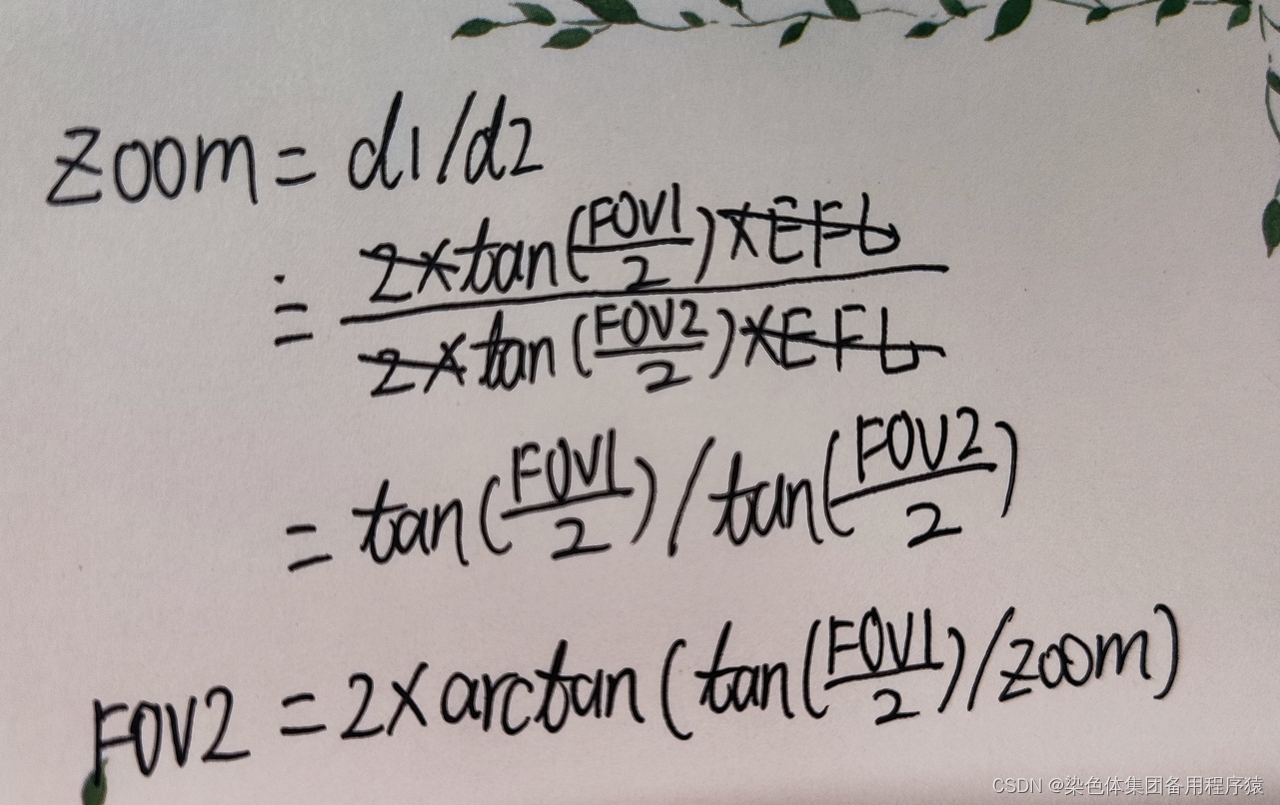 zoom = d1/d2
≐ 2×tan(FOV1/2)×EFL / 2×tan(FOV2/2)×EFL
= tan(FOV1/2) / tan(FOV2/2)
FOV2 = 2×arctan(tan(FOV1/2)/zoom)
CSDN @染色体集团备用程序猿